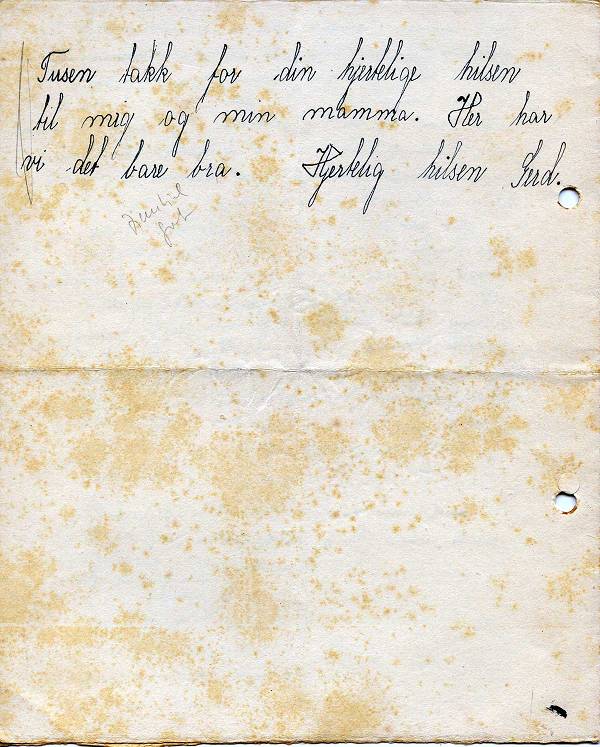 Tusen takk for din hjertelige hilsen
til mig og min mamma. Her har
vi det bare bra. Hjertelig hilsen Gerd.